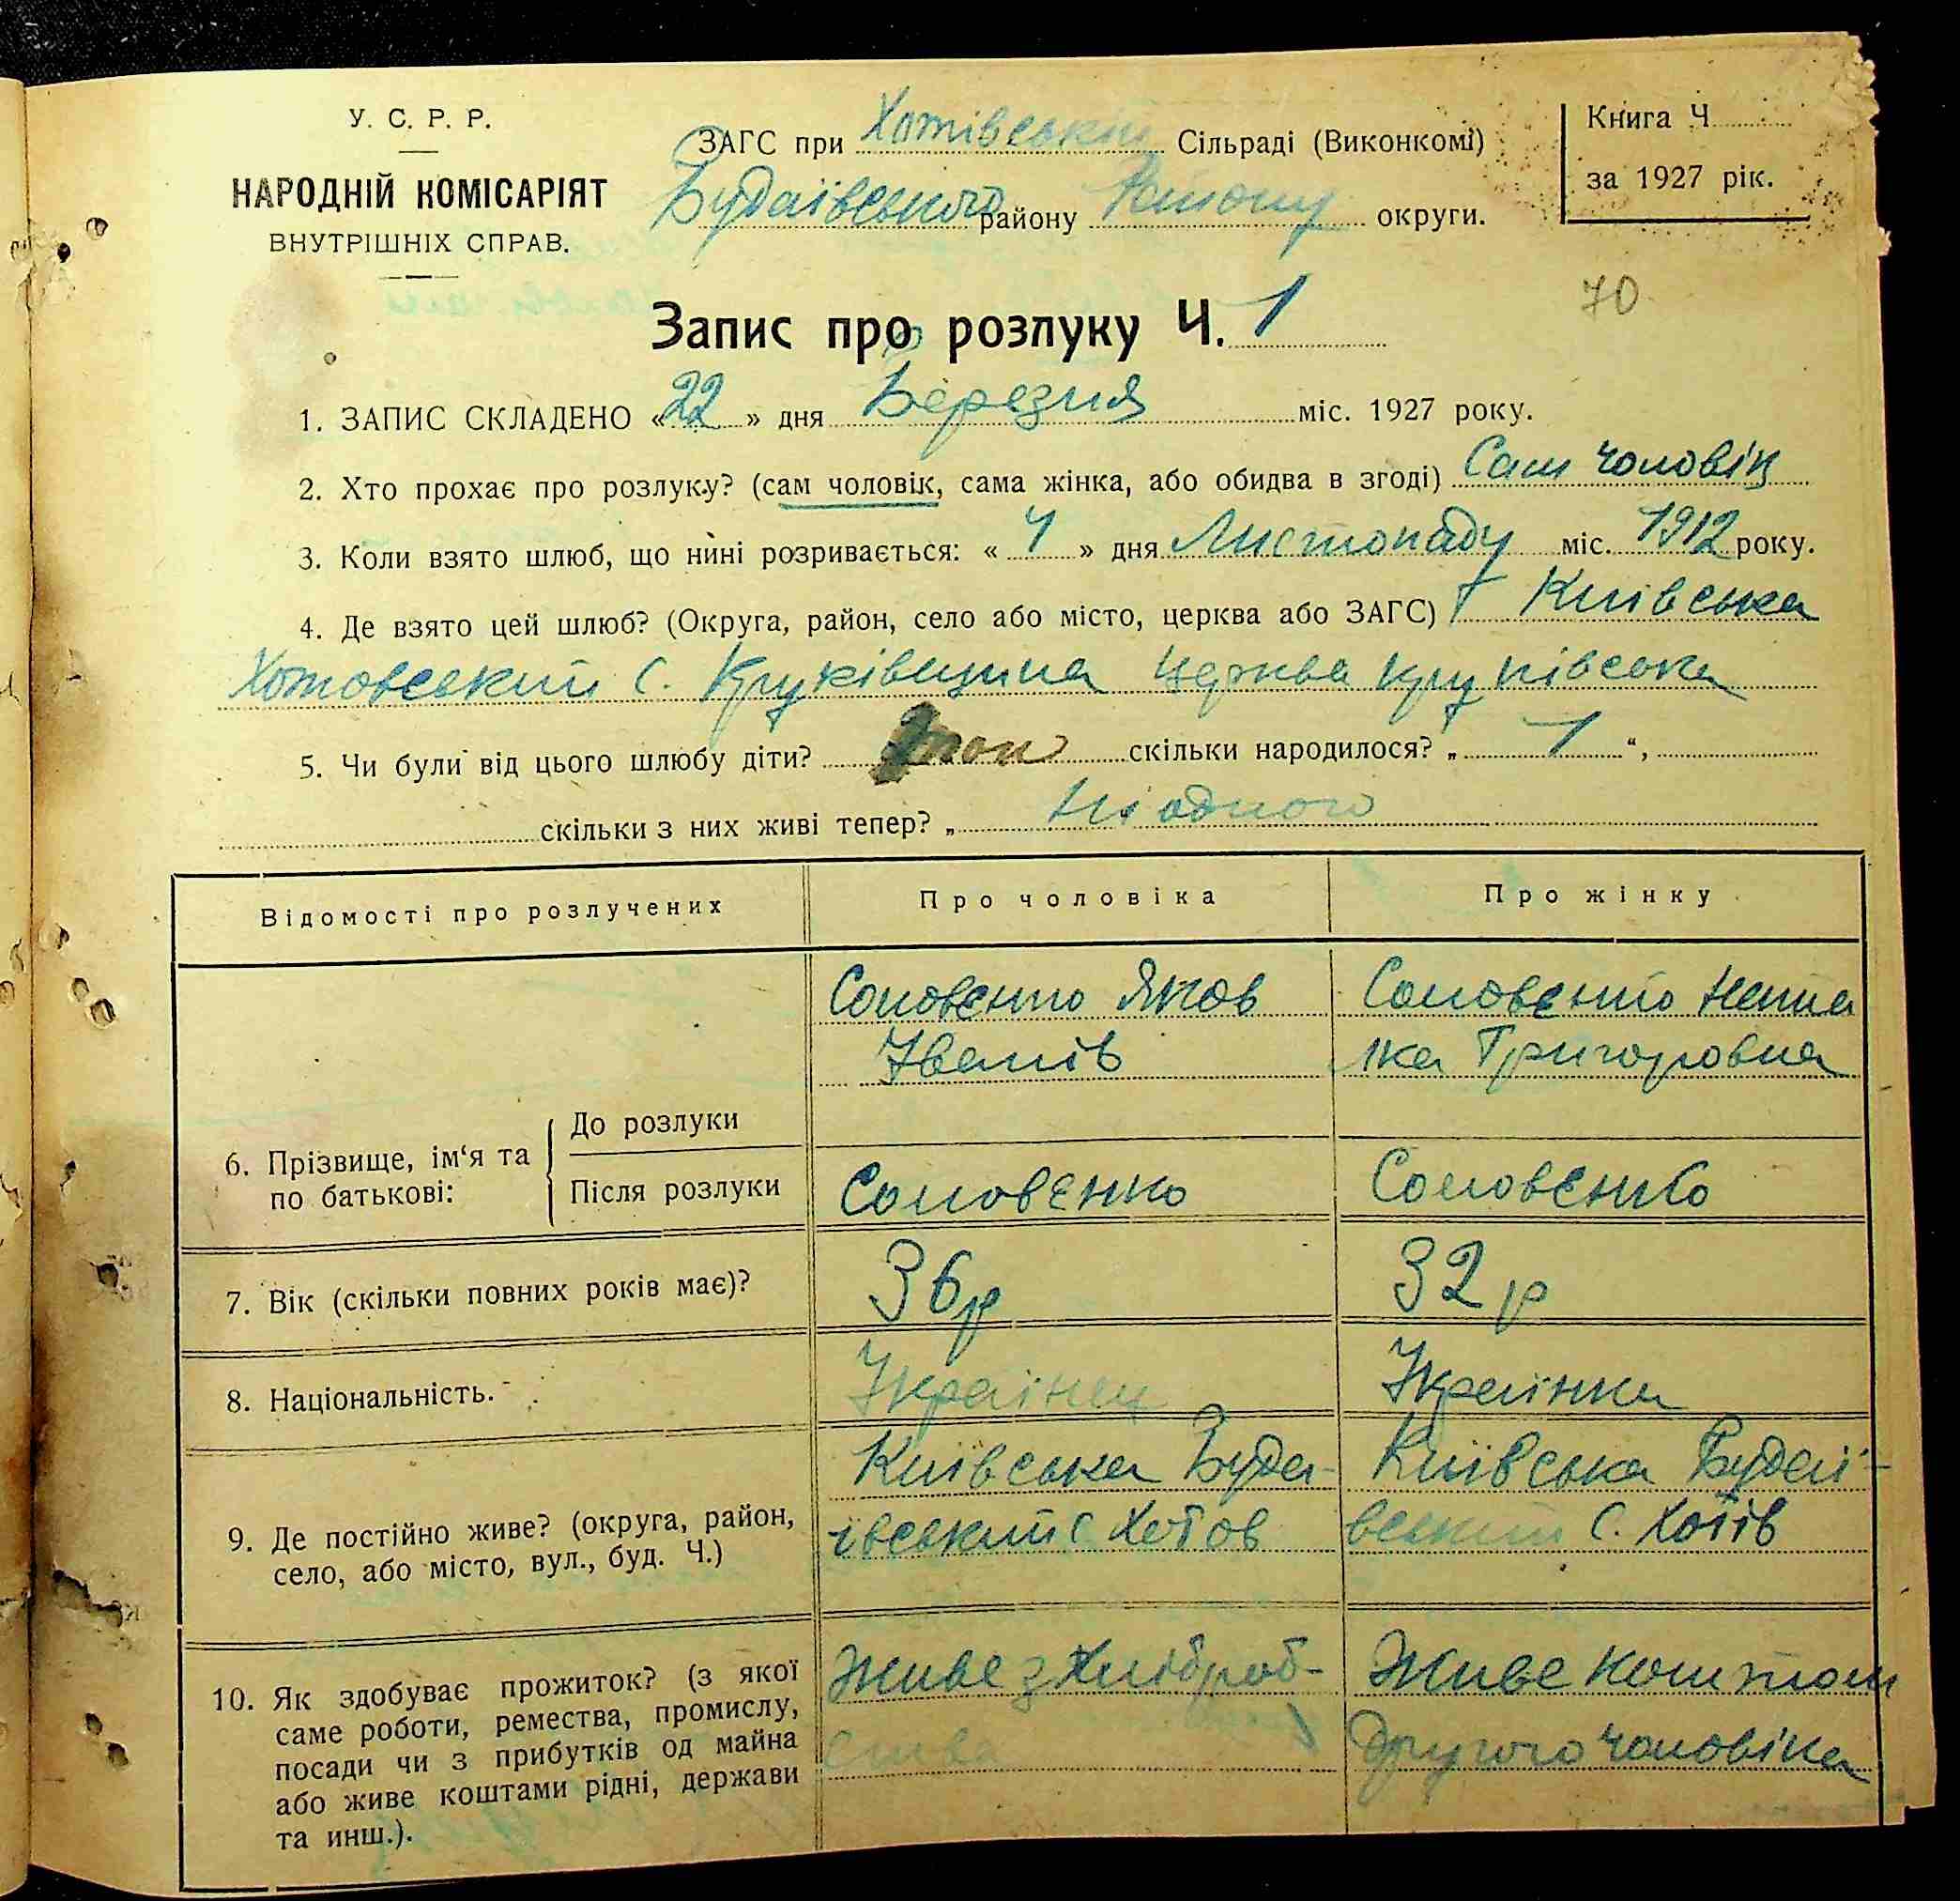 У. С. Р. Р.
НАРОДНІЙ КОМІСАРІЯТ
ВНУТРІШНІХ СПРАВ.
ЗАГС при Хотівській Сільраді (Виконкомі)
Будаївського району округи.
Книга Ч
за 1927 рік.
70
Запис про розлуку Ч. 1
1. ЗАПИС СКЛАДЕНО «22» дня Березня міс. 1927 року.
2. Хто прохає про розлуку? (сам чоловік, сама жінка, або обидва в згоді) Сам чоловік
3. Коли взято шлюб, що нині розривається: « » дня Листопаду міс. 1912 року.
4. Де взято цей шлюб? (Округа, район, село або місто, церква або ЗАГС) Київська
Хотовський с. Круківщина Церква Круківська
5. Чи були від цього шлюбу діти? скільки народилося? „ 1 “,
скільки з них живі тепер? „ Ні одного
Відомості про розлучених
Про чоловіка
Про жінку
6. Прізвище, ім‘я та по батькові:
До розлуки
Соловєнко Яков
Іванів
Соловєнко Ната
лка Григоровна
Після розлуки
Соловєнко
Соловєнко
7. Вік (скільки повних років має)?
36 р
32 р
8. Національність.
Українец
Українка
9. Де постійно живе? (округа, район,
село, або місто, вул., буд. Ч.)
Київська Буда-
ївський с Хотов
Київська Будаї-
вський с. Хотів
10. Як здобуває прожиток? (з якої
саме роботи, ремества, промислу,
посади чи з прибутків од майна
або живе коштами рідні, держави
та инш.).
Живе з Хліброб-
ства
Живе коштом
другого чоловіка